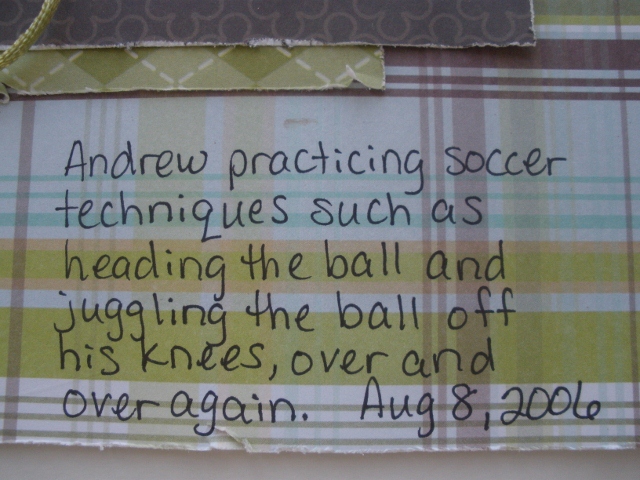 Andrew practicing soccer
techniques such as
heading the ball and
juggling the ball off
his knees, over and
over again. Aug 8, 2006